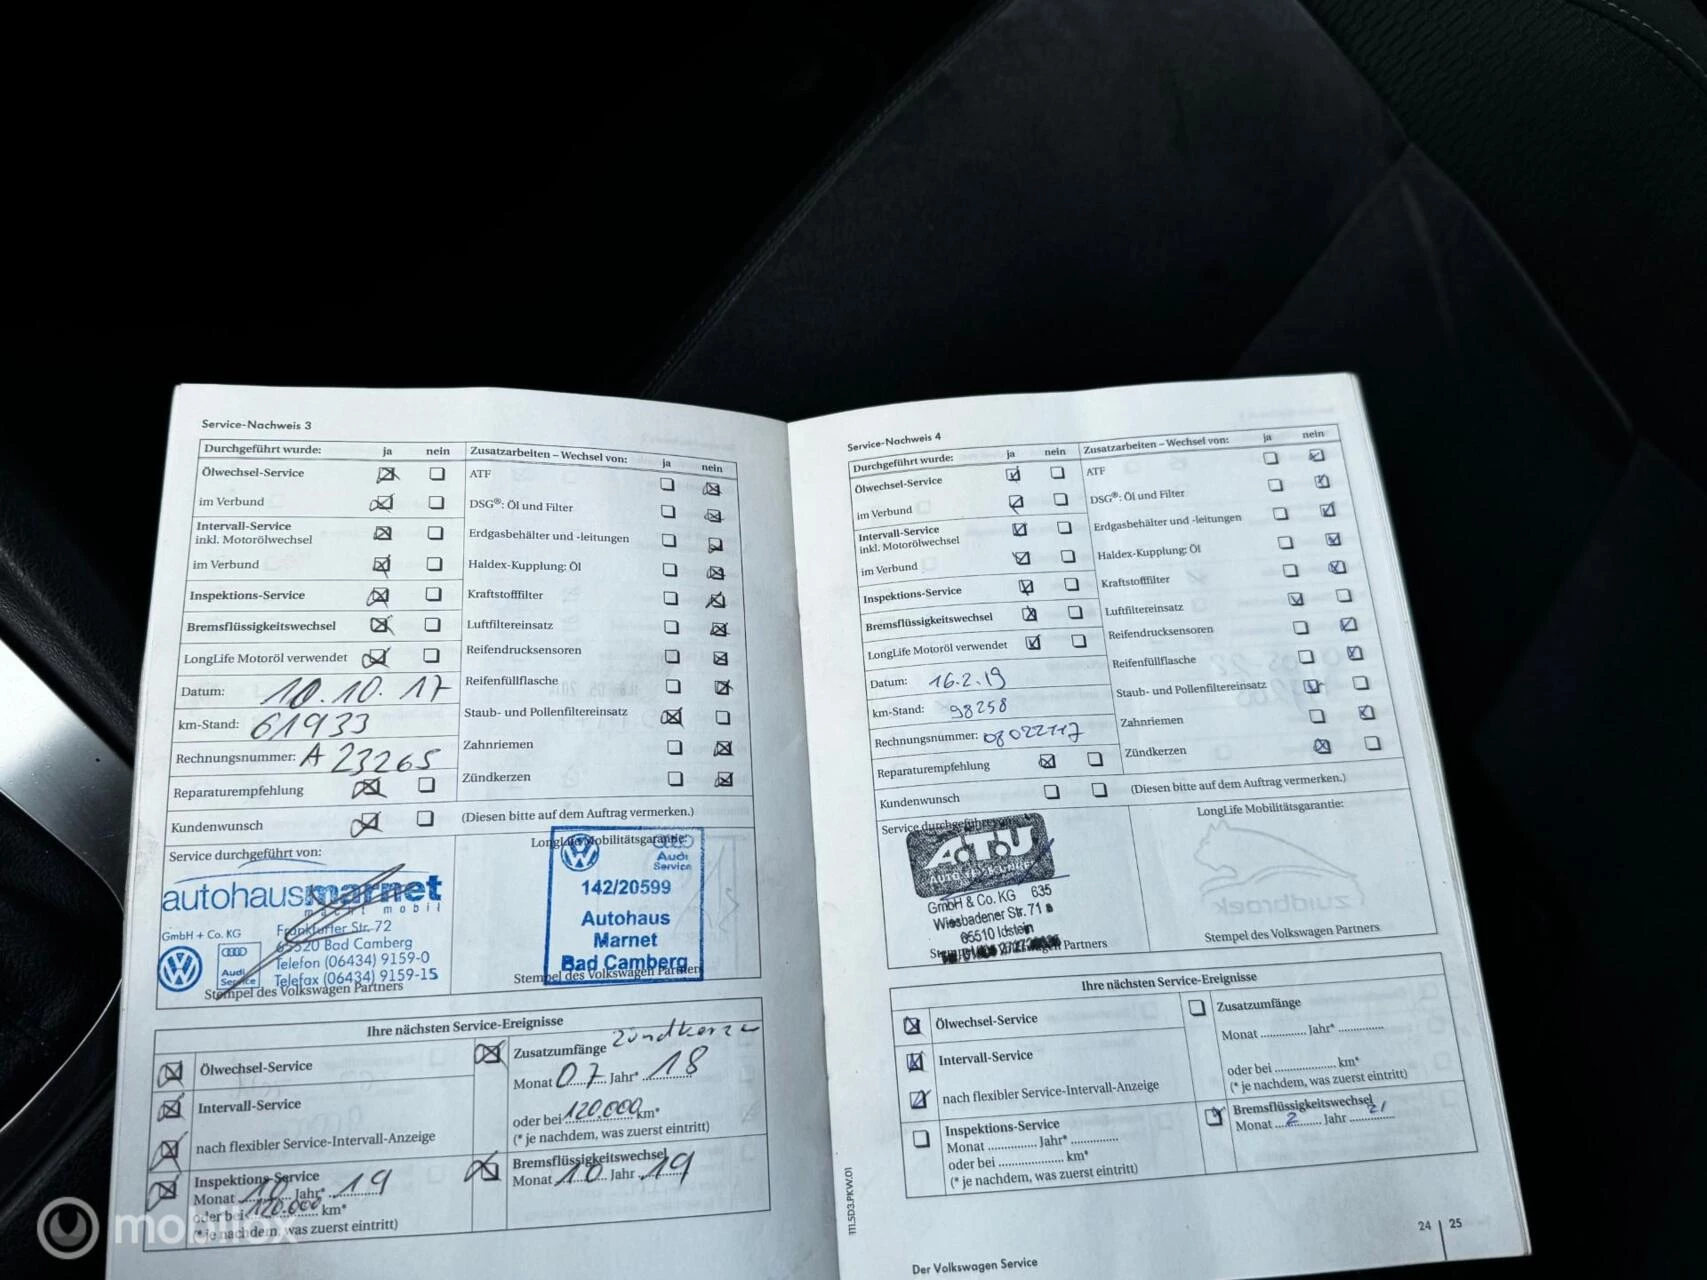 Service-Nachweis 3
Durchgeführt wurde: ja nein
Ölwechsel-Service
im Verbund
Intervall-Service
inkl. Motorölwechsel
im Verbund
Inspektions-Service
Bremsflüssigkeitswechsel
LongLife Motoröl verwendet
Datum: 10.10.17
km-Stand: 61933
Rechnungsnummer: A 23265
Reparaturempfehlung
Kundenwunsch
Zusatzarbeiten – Wechsel von: ja nein
ATF
DSG®: Öl und Filter
Erdgasbehälter und -leitungen
Haldex-Kupplung: Öl
Kraftstofffilter
Luftfiltereinsatz
Reifendrucksensoren
Reifenfüllflasche
Staub- und Pollenfiltereinsatz
Zahnriemen
Zündkerzen
(Diesen bitte auf dem Auftrag vermerken.)
Service durchgeführt von:
autohausmarnet
macht mobil
GmbH + Co. KG
Frankfurter Str. 72
65520 Bad Camberg
Telefon (06434) 9159-0
Telefax (06434) 9159-15
Audi
Service
Stempel des Volkswagen Partners
LongLife Mobilitätsgarantie:
Audi
Service
142/20599
Autohaus
Marnet
Bad Camberg
Stempel des Volkswagen Partners
Ihre nächsten Service-Ereignisse
Ölwechsel-Service
Intervall-Service
nach flexibler Service-Intervall-Anzeige
Inspektions-Service
Monat 10 Jahr* 19
oder bei 120.000 km*
(* je nachdem, was zuerst eintritt)
Zusatzumfänge Zündkerze
Monat 07 Jahr* 18
oder bei 120.000 km*
(* je nachdem, was zuerst eintritt)
Bremsflüssigkeitswechsel
Monat 10 Jahr 19
Service-Nachweis 4
Durchgeführt wurde: ja nein
Ölwechsel-Service
im Verbund
Intervall-Service
inkl. Motorölwechsel
im Verbund
Inspektions-Service
Bremsflüssigkeitswechsel
LongLife Motoröl verwendet
Datum: 16.2.19
km-Stand: 98258
Rechnungsnummer: 08022117
Reparaturempfehlung
Kundenwunsch
Zusatzarbeiten – Wechsel von: ja nein
ATF
DSG®: Öl und Filter
Erdgasbehälter und -leitungen
Haldex-Kupplung: Öl
Kraftstofffilter
Luftfiltereinsatz
Reifendrucksensoren
Reifenfüllflasche
Staub- und Pollenfiltereinsatz
Zahnriemen
Zündkerzen
(Diesen bitte auf dem Auftrag vermerken.)
Service durchgeführt von:
A.T.U
GmbH & Co. KG 635
Wiesbadener Str. 71
65510 Idstein
Partners
LongLife Mobilitätsgarantie:
Stempel des Volkswagen Partners
Ihre nächsten Service-Ereignisse
Ölwechsel-Service
Intervall-Service
nach flexibler Service-Intervall-Anzeige
Inspektions-Service
Monat Jahr*
oder bei km*
(* je nachdem, was zuerst eintritt)
Zusatzumfänge
Monat Jahr*
oder bei km*
(* je nachdem, was zuerst eintritt)
Bremsflüssigkeitswechsel
Monat 2 Jahr 21
111.5D3.PKW.01
24 | 25
Der Volkswagen Service
mobilox